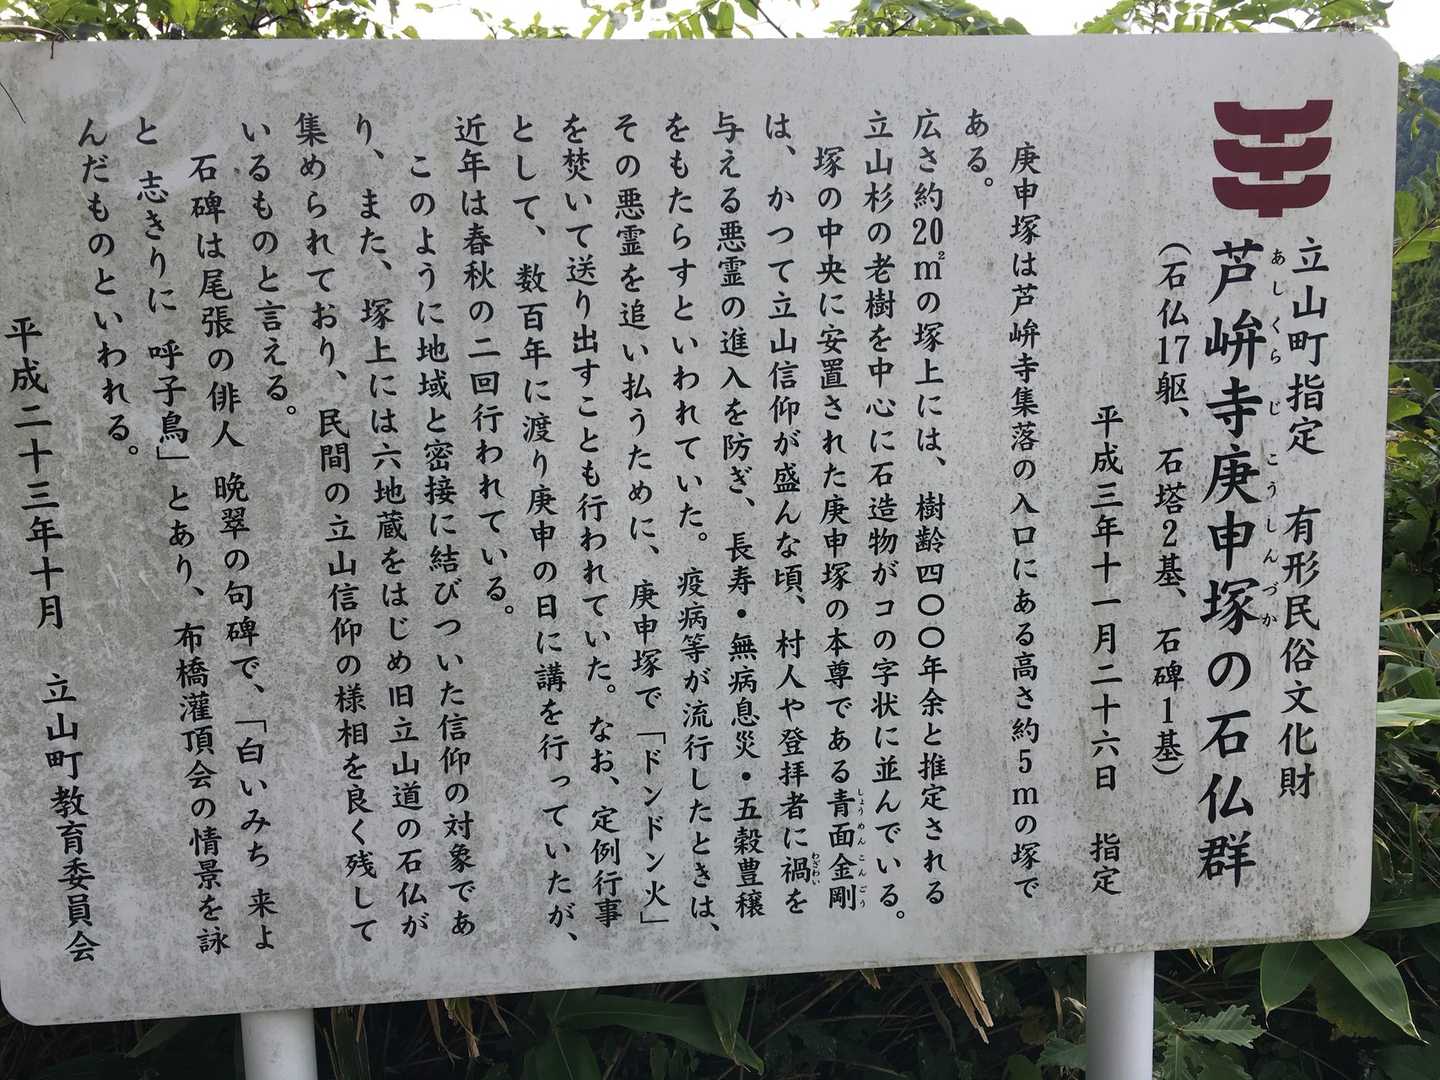 立山町指定　有形民俗文化財
芦峅寺庚申塚の石仏群
あしくらじこうしんづか
（石仏17躯、石塔2基、石碑1基）
平成三年十一月二十六日　指定
庚申塚は芦峅寺集落の入口にある高さ約5ｍの塚で
ある。
広さ約20㎡の塚上には、樹齢四〇〇年余と推定される
立山杉の老樹を中心に石造物がコの字状に並んでいる。
塚の中央に安置された庚申塚の本尊である青面金剛
しょうめんこんごう
は、かつて立山信仰が盛んな頃、村人や登拝者に禍を
わざわい
与える悪霊の進入を防ぎ、長寿・無病息災・五穀豊穣
をもたらすといわれていた。疫病等が流行したときは、
その悪霊を追い払うために、庚申塚で「ドンドン火」
を焚いて送り出すことも行われていた。なお、定例行事
として、数百年に渡り庚申の日に講を行っていたが、
近年は春秋の二回行われている。
このように地域と密接に結びついた信仰の対象であ
り、また、塚上には六地蔵をはじめ旧立山道の石仏が
集められており、民間の立山信仰の様相を良く残して
いるものと言える。
石碑は尾張の俳人　晩翠の句碑で、「白いみち　来よ
と　志きりに　呼子鳥」とあり、布橋灌頂会の情景を詠
んだものといわれる。
平成二十三年十月　立山町教育委員会